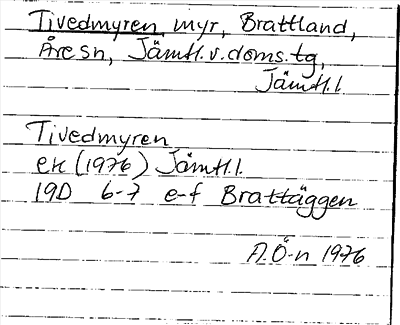 Tivedmyren myr, Brattland,
Åre sn, Jämtl.v.doms.tg,
Jämtl.l.
Tivedmyren
ek (1976) Jämtl.l.
19D 6-7 e-f Brattäggen
A.Ö-n 1976